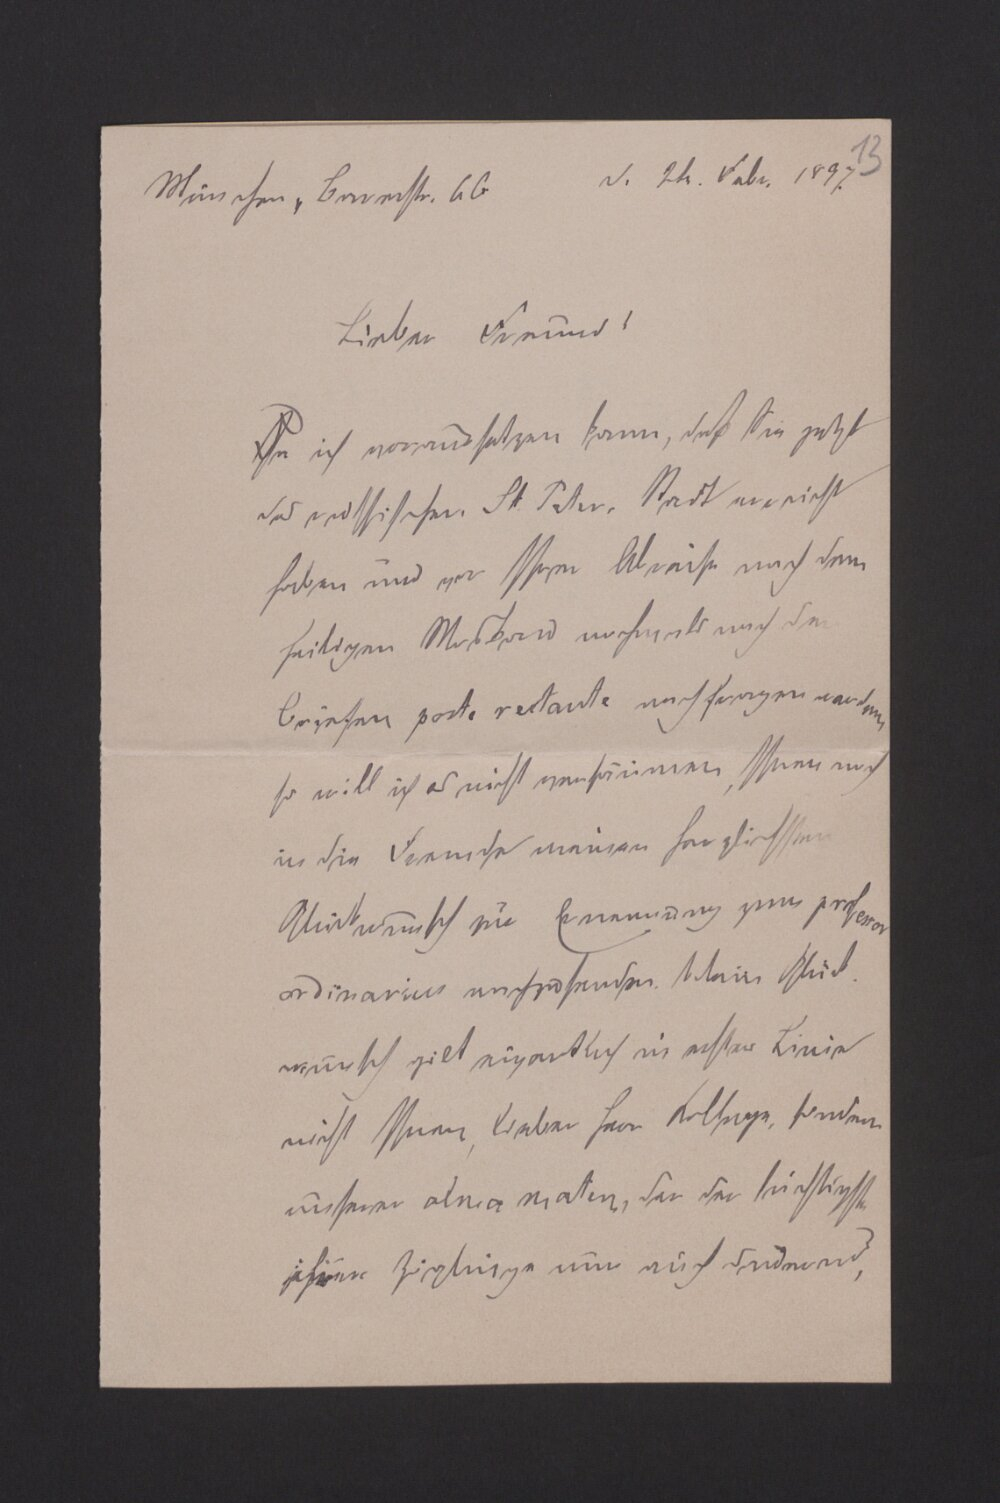 13
München, Barerstr. 66 d. 24. Febr. 1897.
Lieber Freund!
Da ich voraussetzen kann, daß Sie jetzt
das russische St. Peter-Stadt erreicht
haben und vor Ihrer Abreise nach dem
heiligen Moskau nochmals nach den
Briefen poste restante nachfragen werden,
so will ich es nicht versäumen, Ihnen noch
in die Fremde meinen herzlichsten
Glückwunsch zur Ernennung zum professor
ordinarius nachzusenden. Mein Glück-
wunsch gilt eigentlich in erster Linie
nicht Ihnen, lieber Herr Kollege, sondern
unserer alma mater, der der tüchtigste
ihrer Zöglinge nun auch dauernd,